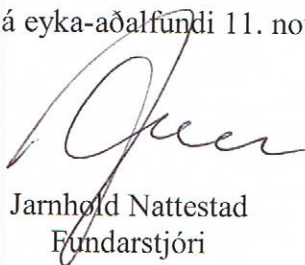 á eyka-aðalfundi 11. no
Jarnhold Nattestad
Fundarstjóri